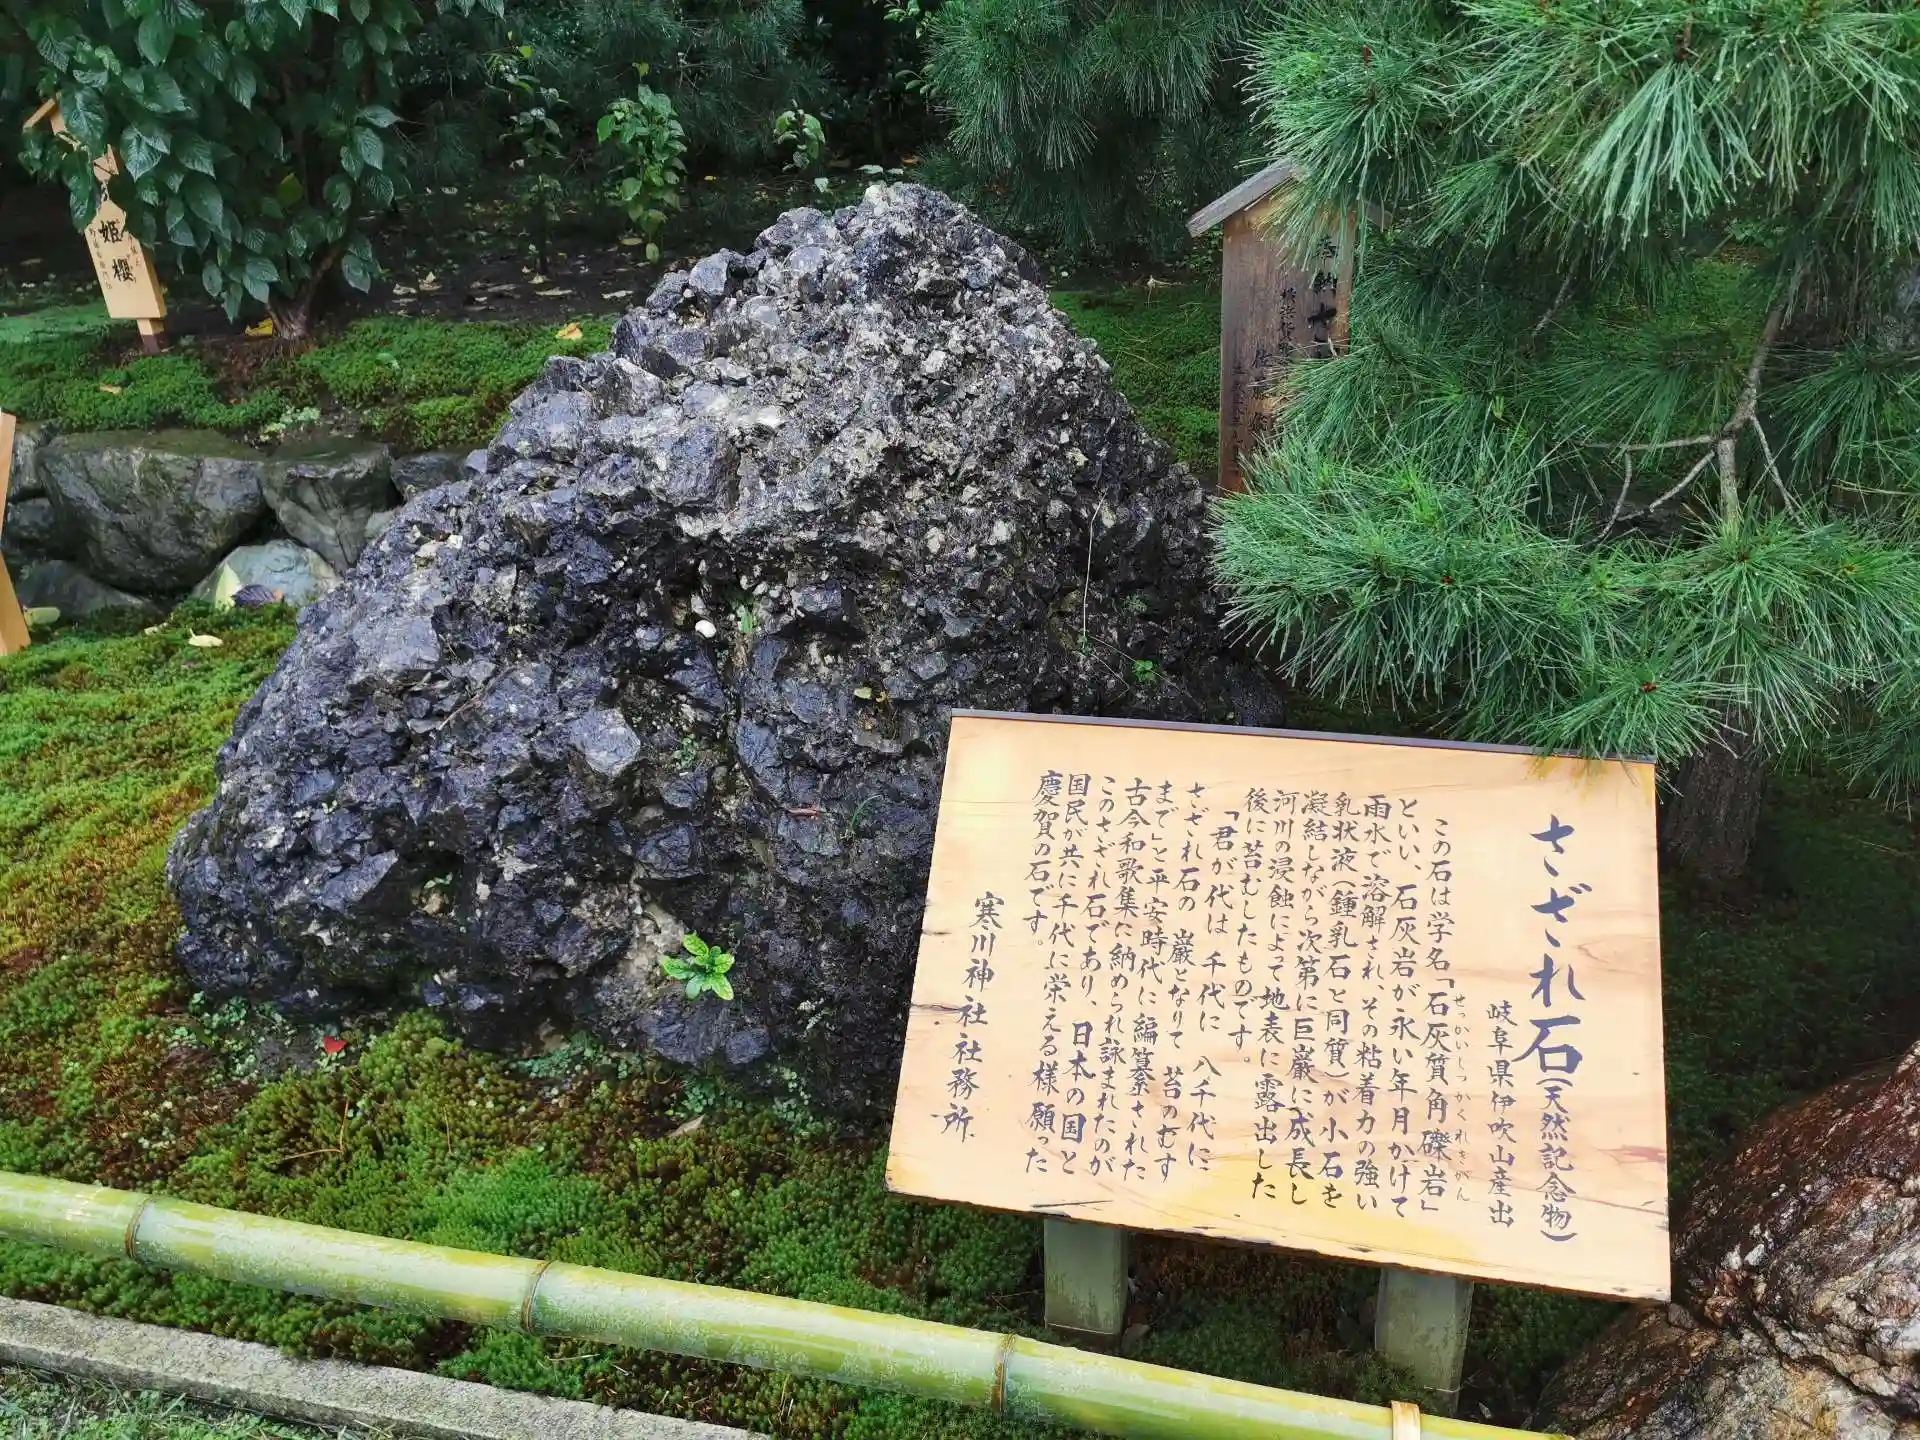 さざれ石(天然記念物)
岐阜県伊吹山産出
この石は学名「石灰質角礫岩」
せっかいしつかくれきがん
といい、石灰岩が永い年月かけて
雨水で溶解され、その粘着力の強い
乳状液(鍾乳石と同質)が小石を
凝結しながら次第に巨巌に成長し
河川の浸蝕によって地表に露出した
後に苔むしたものです。
「君が代は 千代に 八千代に
さざれ石の 巌となりて 苔のむす
まで」と平安時代に編纂された
古今和歌集に納められ詠まれたのが
このさざれ石であり、日本の国と
国民が共に千代に栄える様願った
慶賀の石です。
寒川神社社務所
奉納さ
姫櫻